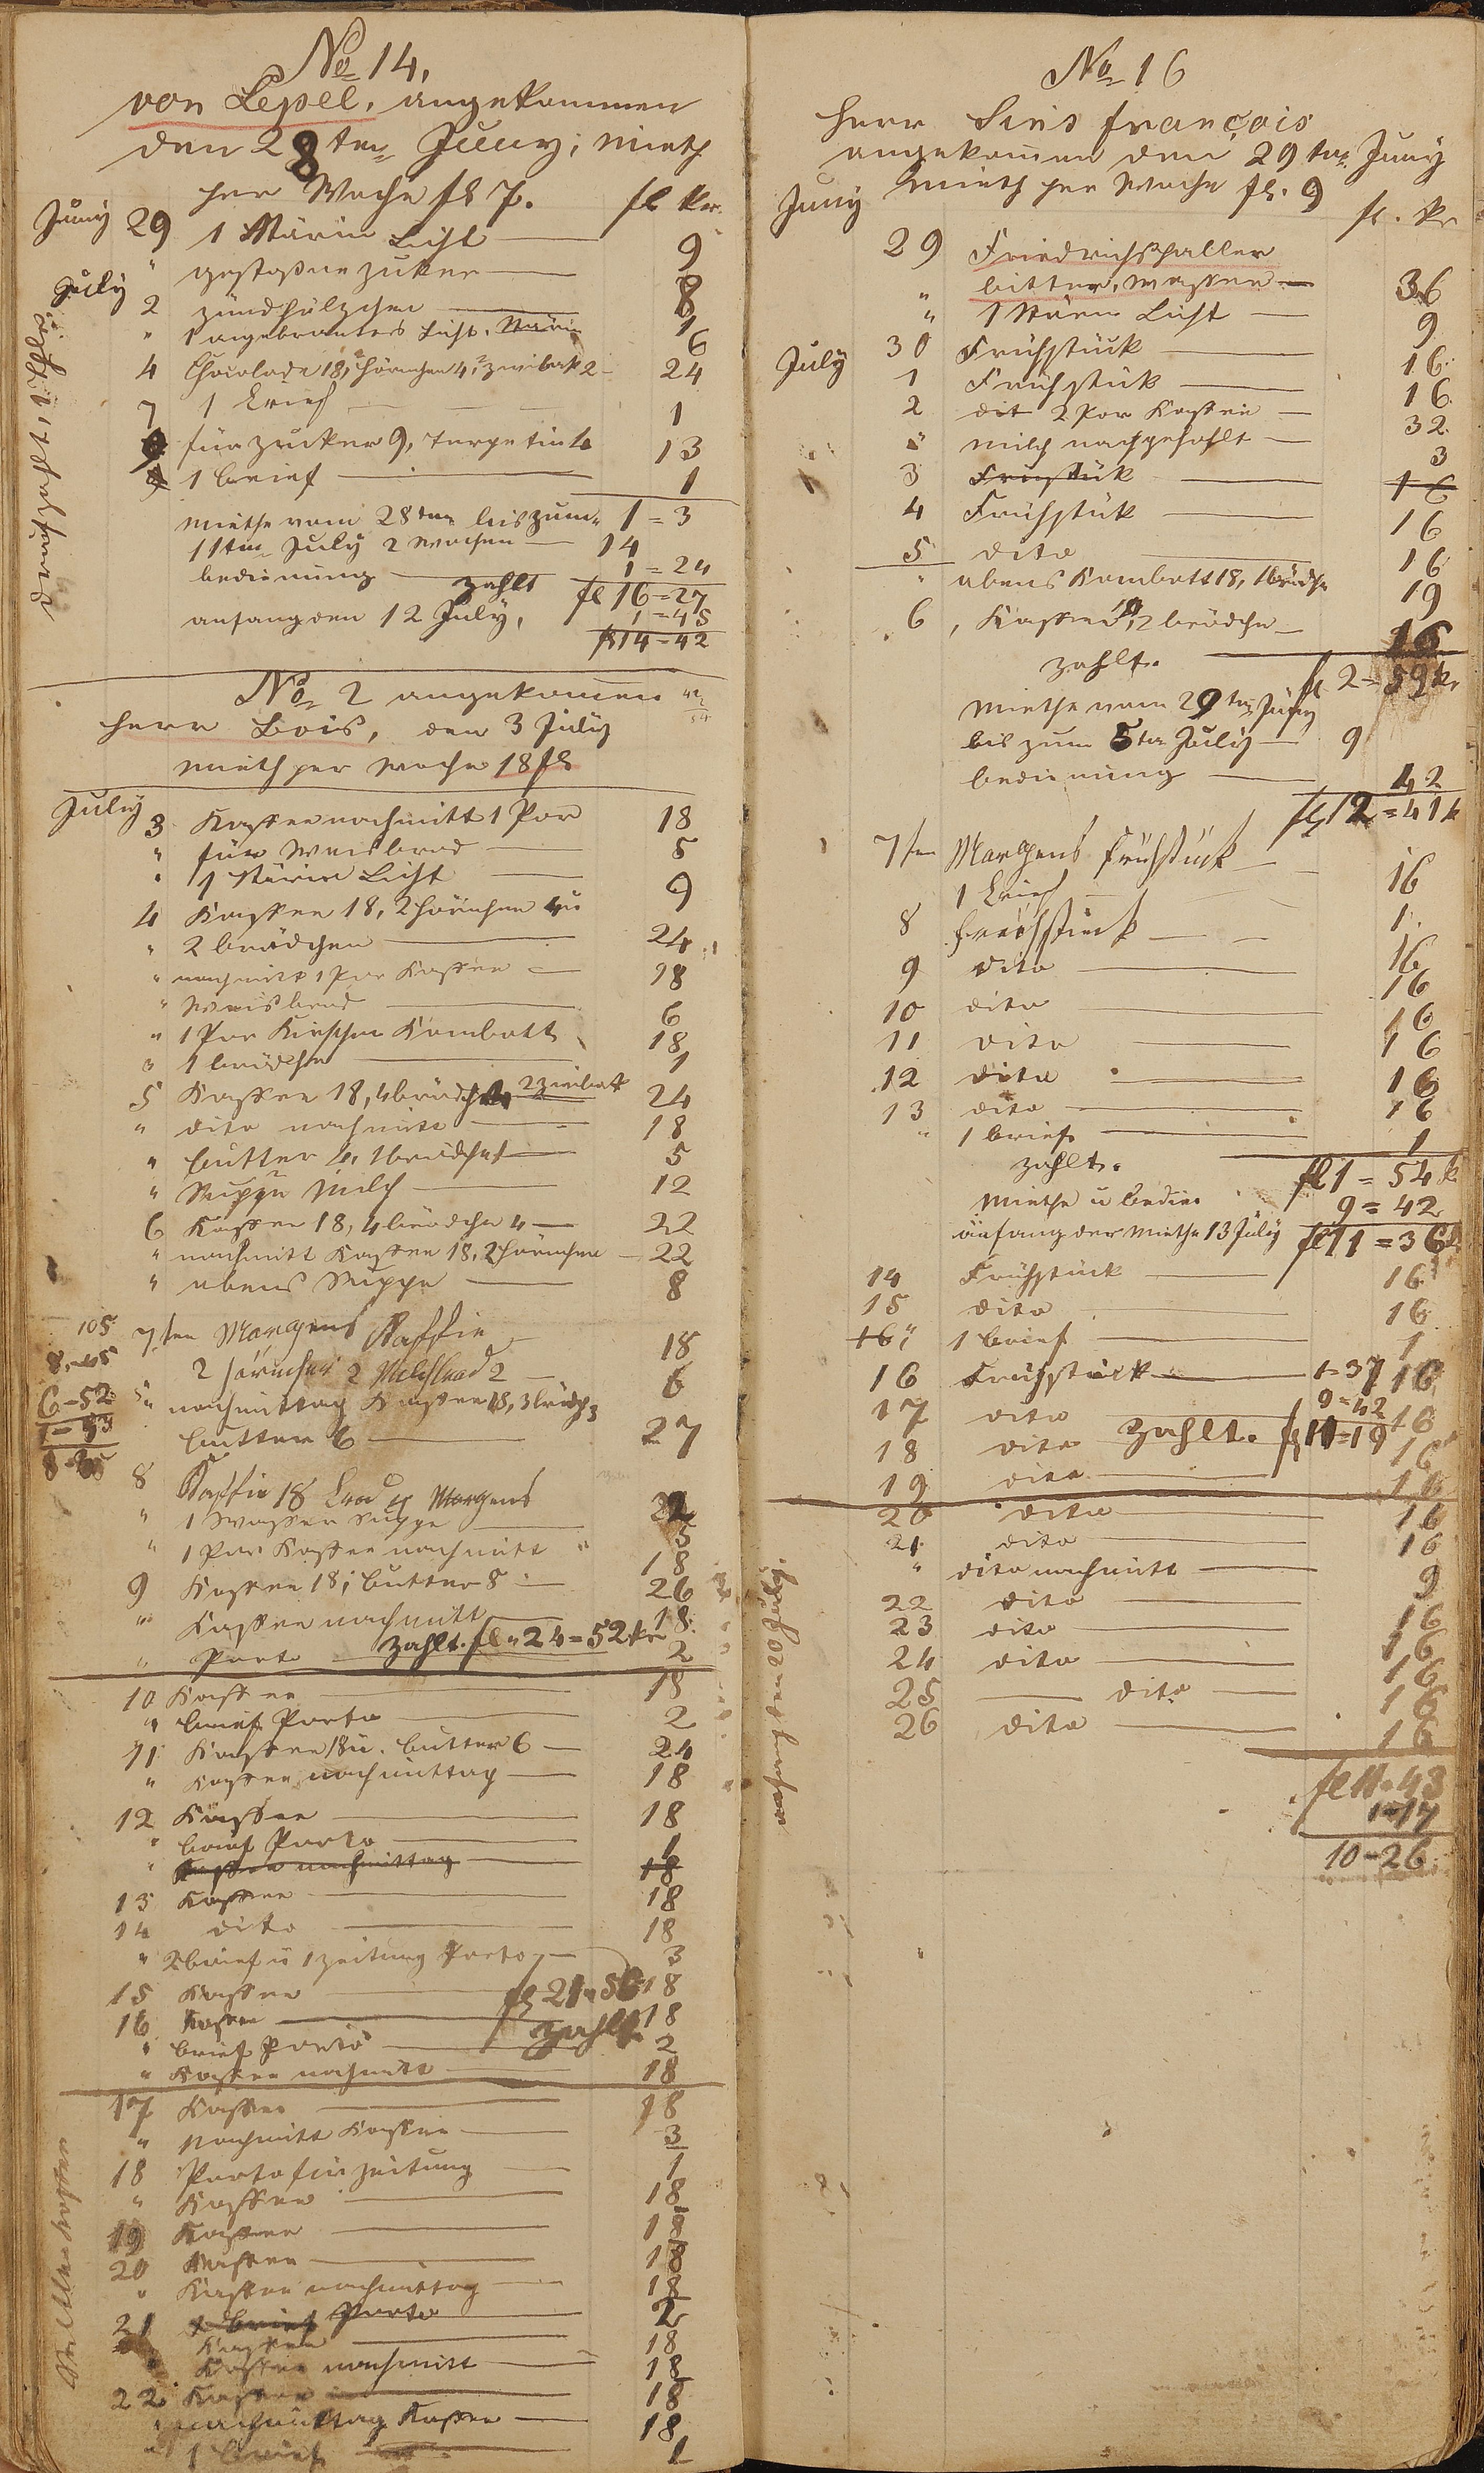 No 14.
von Lepel, angekommen
den 28ten Juny, mieth
per Woche fl 7.
fl kr.
Juny 29 1 Stärin Licht — 9
" gestoßene zuker — 8
July 2 zündhölzchen — 1
" 1 angebrantes Licht, Stärin 6
4 Chocolade 18, 2 Hörnchen 4, 2 zwiback 2 — 24
7 1 Brief — 1
8 für zucker 9, Terpetin 4 13
9 1 brief — 1
1 = 3
miethe vom 28ten bis zum
11ten July 2 Wochen — 14
bedienung — 1 = 24
zahlt fl 16 = 27
1 = 45
anfang den 12 July,
fl 14 - 42
No 2 angekomen
Herr Bois, den 3 July
mieth per Woche 18 fl
July 3 Kaffee nachmitt 1 Por 18
" für Weisbrod — 5
" 1 Stärin Licht — 9
4 Kaffee 18, 2 Hörnchen 4 u
" 2 brödchen — 24
" nachmitt 1 Por Kaffee — 18
" Weisbrod — 6
" 1 Por Kirschen Kombott 18
" 1 brödchen — 1
5 Kaffee 18, 4 brödch 4, 2 zwiback 24
" dito nachmitt — 18
" butter 4, 1 brödchen — 5
" Suppe Milch — 12
6 Kaffee 18, 4 brödchen 4 — 22
" nachmitt Kaffee 18, 2 Hörnchen — 22
" abens Suppe — 8
105
7ten Morgens Kaffie — 18
2 Hörnchen 2 Milchbrod 2 — 6
6-52
" nachmittag Kaffee 18, 3 brödch 3
butter 6 — 27
8 Kaffie 18 Brod 4 Morgens 22
" 1 Wasser Suppe — 5
" 1 Por Kaffee nachmitt " 18
9 Kaffee 18, butter 8 — 26
" Kaffee nachmitt — 18
" Porto — zahlt. fl. 24 = 52 kr 2
10 Kaffee — 18
" brief Porto — 2
11 Kaffee 18 u. butter 6 — 24
" Kaffee nachmittag — 18
12 Kaffee — 18
" brief Porto — 1
" Kaffee nachmittag — 18
13 Kaffee — 18
14 dito — 18
" 2 brief u 1 zeitung Porto — 3
15 Kaffee — fl 21 = 56 18
16 Kaffee — zahlt 18
" brief Porto — 2
" Kaffee nachmitt — 18
17 Kaffee — 18
" Nachmitt Kaffee — 3
18 Porto für zeitung — 1
" Kaffee — 18
19 Kaffee — 18
20 Kaffee — 18
" Kaffee nachmittag — 18
21 1 brief Porto — 2
Kaffee — 18
" Kaffee nachmitt — 18
22 Kaffee — 18
" nachmittag Kaffee — 18
" 1 brief — 1
No 16
Herr Sins François
angekomen den 29ten Juny
mieth per Woche fl. 9
fl. kr
Juny 29 Friedrichshaller
" bitter, wasser — 36
" 1 Stärin Licht — 9
30 Frühstück — 16
July 1 Frühstük — 16
2 dit 2 Por Kaffee — 32
" milch nachgehohlt — 3
3 Frustük — 16
4 Frühstük — 16
5 dito — 16
" abens Kombott 18, 1 brödch 19
6, Kaffee 14, 2 brödche — 16
zahlt. fl 2 = 59 kr
miethe vom 29ten Juny
bis zum 5ten July — 9
bedienung — 42
fl 12 = 41 k
7ten Morgens Frühstück — 16
1 Brief — 1
8 Frühstück — 16
9 dito — 16
10 dito — 16
11 dito — 16
12 dito — 16
13 dito — 16
" 1 brief — 1
zahlt. fl 1 = 54 k
miethe u bedin. 9 = 42
anfang der miethe 13 July fl 11 = 36 k
14 Frühstück — 16
15 dito — 16
" 1 brief — 1
16 Frühstück — 1 = 37 16
9 = 42
17 dito — 16
18 dito zahlt. fl 11 = 19 16
19 dito — 16
20 dito — 16
21 dito — 16
" dito nachmitt — 9
22 dito — 16
23 dito — 16
24 dito — 16
25 — dito — 16
26 dito — 16
anfang den 20 July.
fl 11 = 43
1 = 17
10 - 26